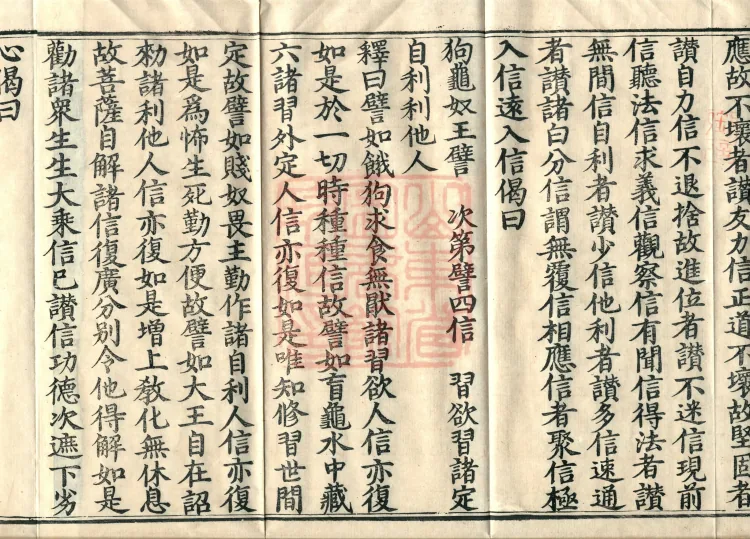 應故不壞者讃友力信正道不壞故堅固者
讃自力信不退捨故進位者讃不迷信現前
信聽法信求義信觀察信有聞信得法者讃
無間信自利者讃少信他利者讃多信速通
者讃諸白分信謂無覆信相應信者聚信極
入信遠入信偈曰
狗龜奴王譬 次第譬四信 習欲習諸定
自利利他人
釋曰譬如餓狗求食無猒諸習欲人信亦復
如是於一切時種種信故譬如盲龜水中藏
六諸習外定人信亦復如是唯知修習世間
定故譬如賤奴畏主勤作諸自利人信亦復
如是爲怖生死勤方便故譬如大王自在詔
勑諸利他人信亦復如是増上敎化無休息
故菩薩自解諸信復廣分別令他得解如是
勸諸衆生生大乘信已讃信功德次遮下劣
心偈曰